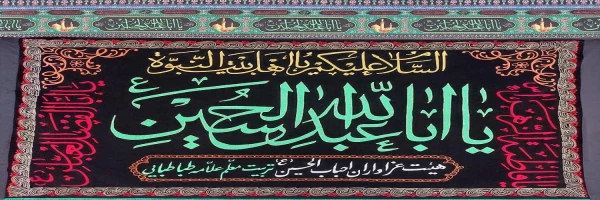 السلام علیکم یا اهل بیت النبوة
یا ابا عبدالله الحسین ع
یا ابا الفضل العباس
هیئت عزاداران احباب الحسین (ع) تربیت معلم علامه طباطبائی